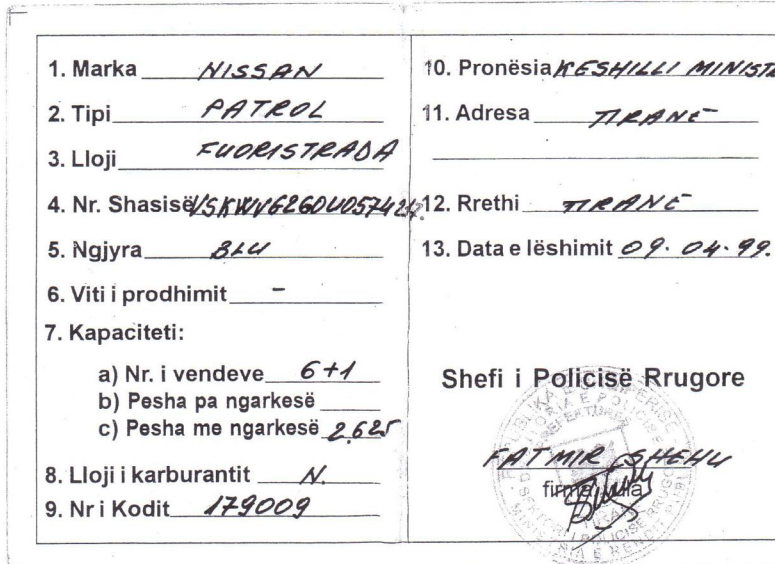 1. Marka NISSAN
2. Tipi PATROL
3. Lloji FUORISTRADA
4. Nr. Shasisë
5. Ngjyra BLU
6. Viti i prodhimit -
7. Kapaciteti:
a) Nr. i vendeve 6+1
b) Pesha pa ngarkesë
c) Pesha me ngarkesë 2.625
8. Lloji i karburantit N.
9. Nr i Kodit 179009
10. Pronësia KESHILLI MINIST
11. Adresa TIRANË
12. Rrethi TIRANË
13. Data e lëshimit 09.04.99.
Shefi i Policisë Rrugore
FATMIR SHEHU